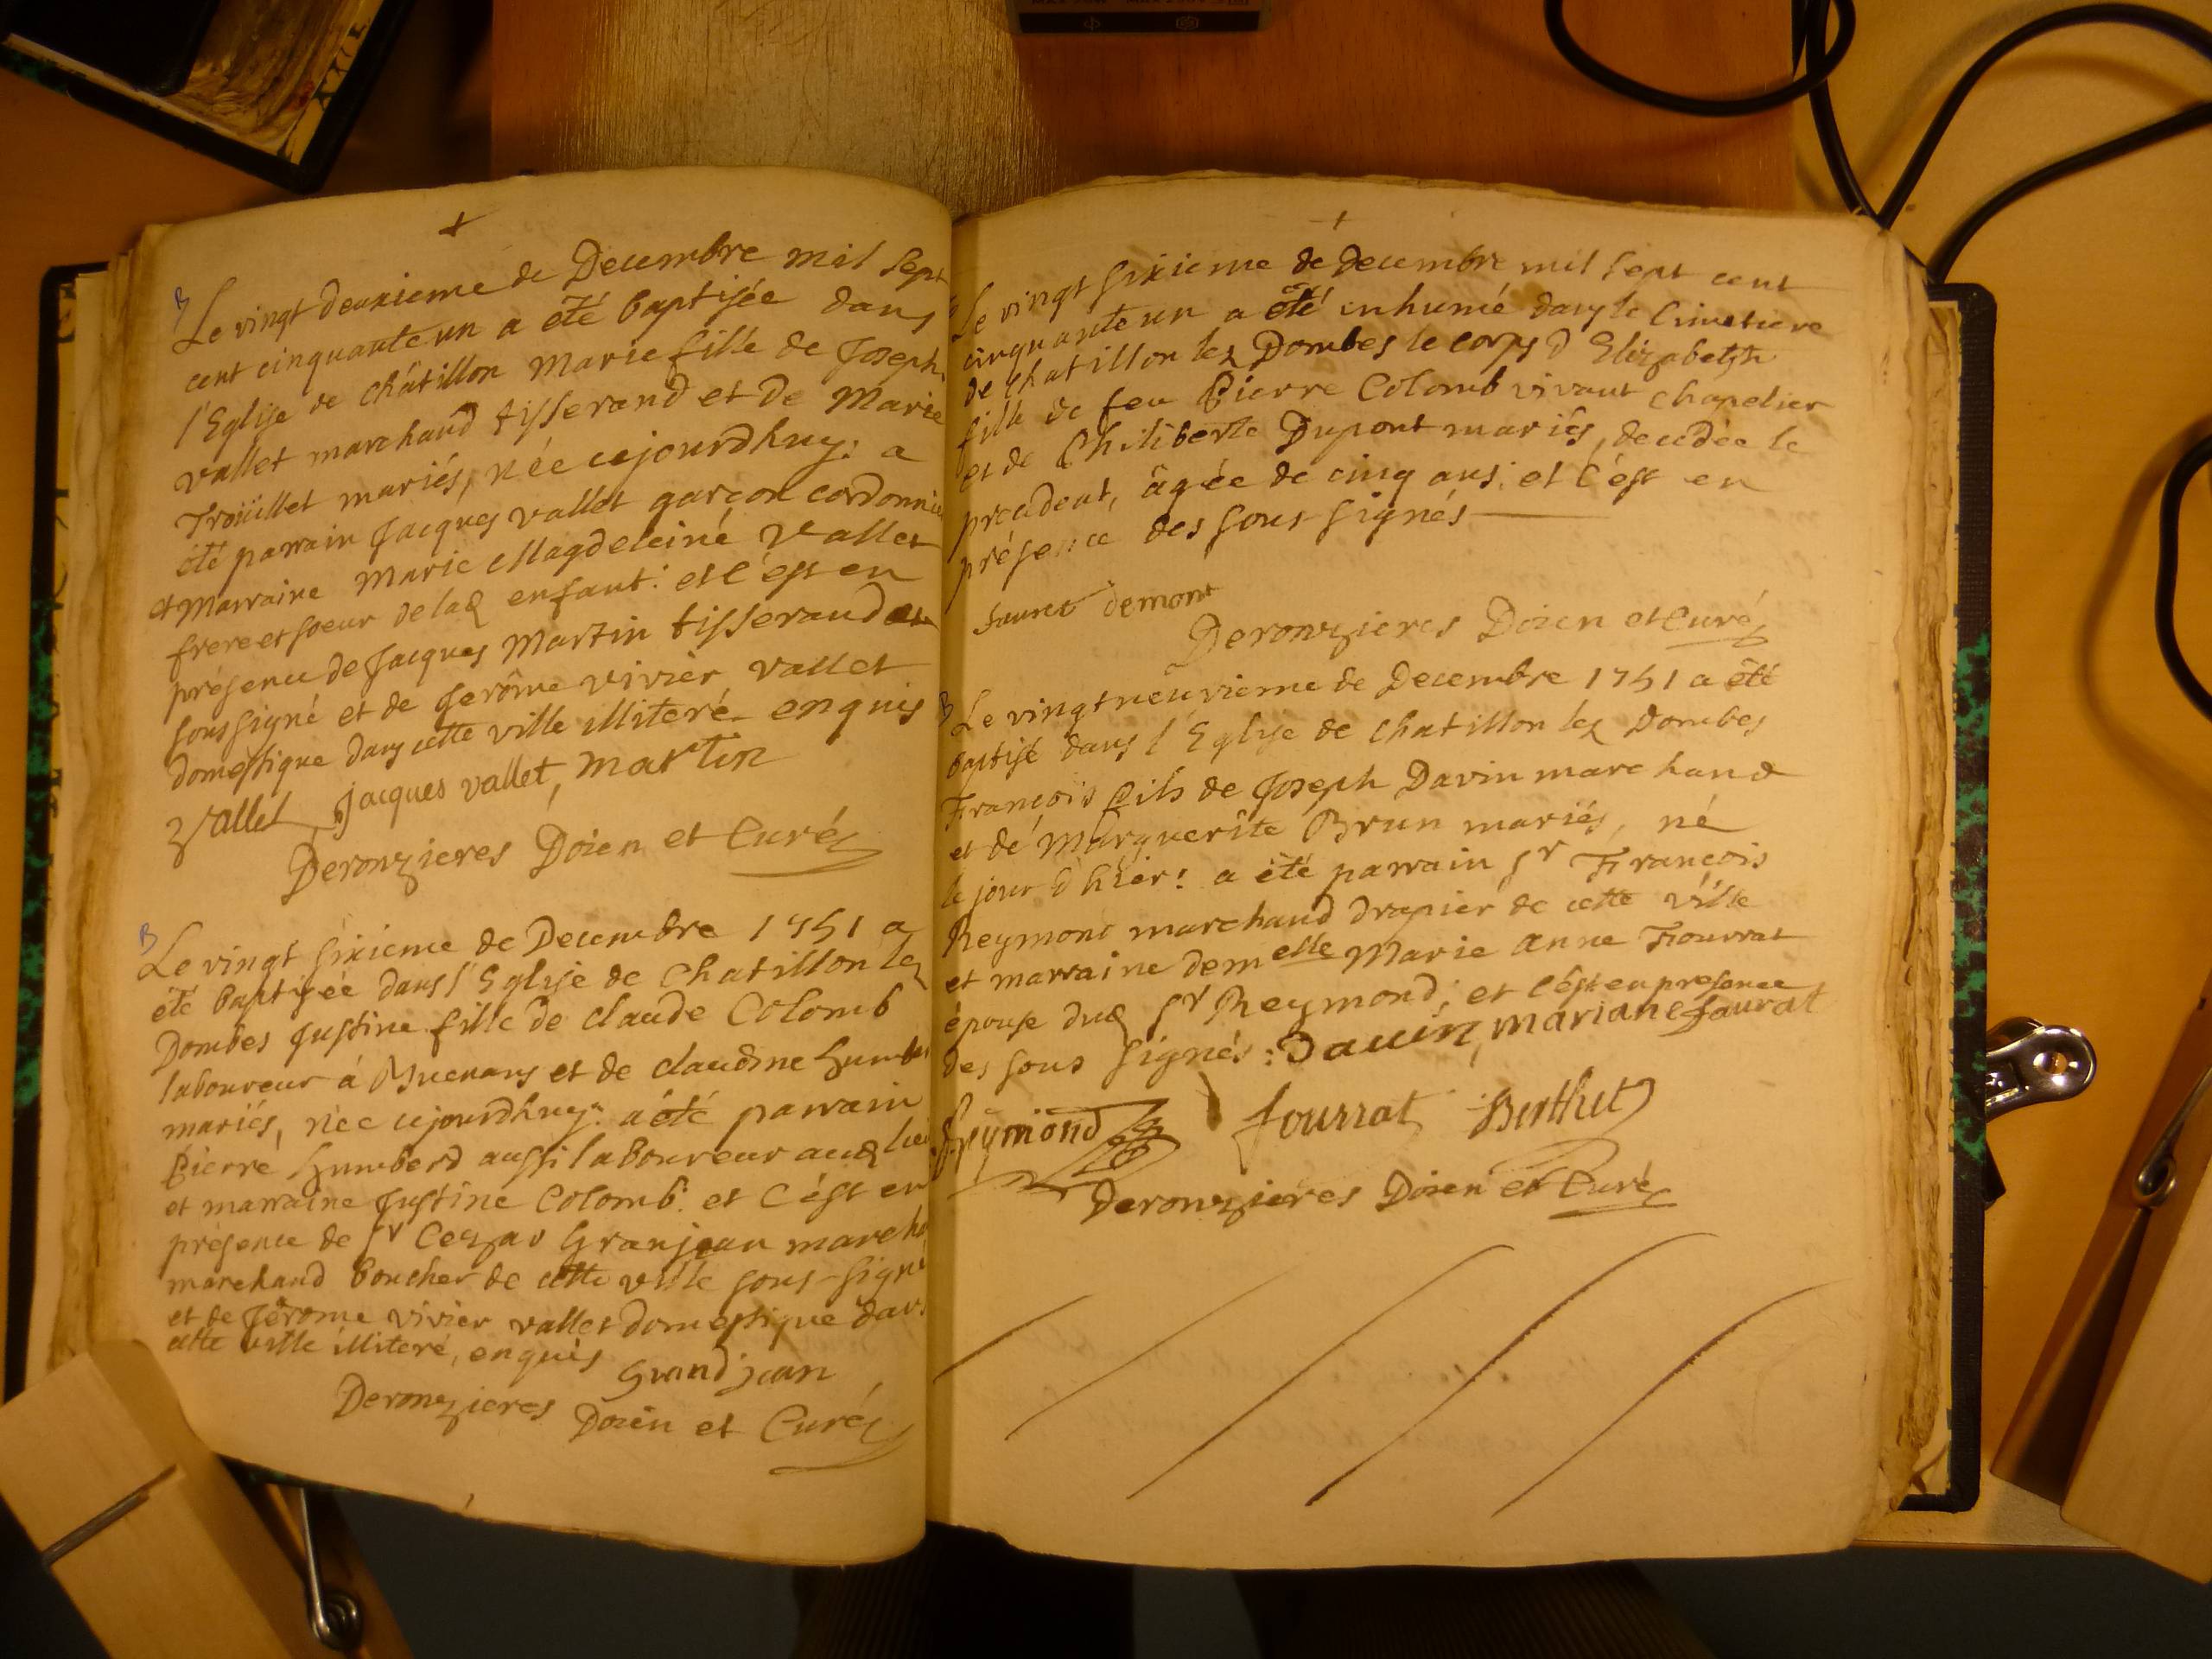 B
Le vingt deuxieme de Decembre mil Sept
cent cinquante un a été baptisée dans
l'Eglise de Châtillon Marie fille de Joseph
vallet marchand tisserand et de Marie
Troüillet mariés, née cejourdhuy: a
été parrain Jacques vallet garçon cordonnier
et Marraine Marie Magdeleine Vallet
frere et soeur de lad enfant: et c'est en
présence de Jacques Martin tisserand et
sous signé et de Jerôme vivier vallet
domestique dans cette ville illiteré enquis
Vallet Jacques vallet, Martin
Deronzieres Doien et Curé
B
Le vingt sixieme de Decembre 1751 a
été baptisée dans l'Eglise de Chatillon lez
Dombes Justine fille de claude Colomb
laboureur à Buenans et de claudine humbert
mariés, née cejourdhuy: a été parrain
Pierre humberd aussi laboureur aud lieu
et marraine Justine Colomb: et c'est en
présence de Sr Cezar Granjean march
marchand boucher de cette ville sous-signé
et de Jérome vivier vallet domestique dans
cette ville illiteré, enquis
Grandjean
Deronzieres Doien et Curé
Le vingt sixieme de decembre mil sept cent
cinquante un a été inhumé dans le Cimetiere
de Chatillon lez Dombes le corps d'Elizabeth
fille de feu Pierre Colomb vivant chapelier
et de Philiberte Dupont mariés, decedée le
precedent, âgée de cinq ans: et c'est en
présence des sous signés
demont
Deronzieres Doien et Curé
B
Le vingt neuvieme de Decembre 1751 a été
baptisé dans l'Eglise de Chatillon lez Dombes
François fils de Joseph Davin marchand
et de Marguerite Brun mariés, né
le jour d'hier: a été parrain Sr François
Reymond marchand drapier de cette ville
et marraine demelle Marie Anne Fourrat
épouse dud Sr Reymond; et c'est en presence
des sous signés: Dauin, mariane faurat
Reymond fourrat Berthet
Deronzieres Doien et Curé